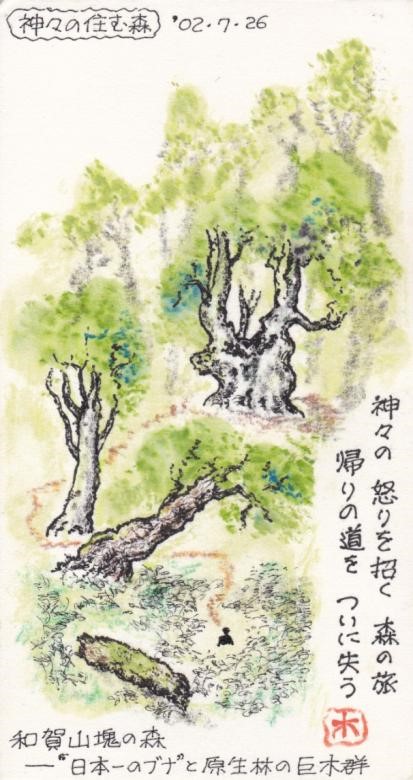 神々の住む森 '02.7.26
神々の 怒りを招く 森の旅
帰りの道を ついに失う
木
和賀山塊の森
―"日本一のブナ"と原生林の巨木群